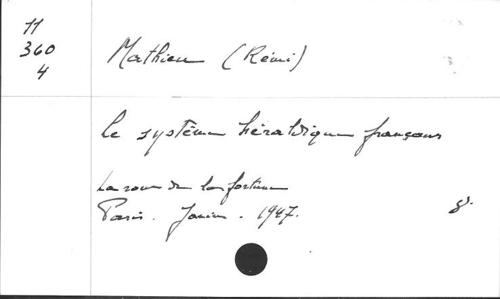 11
360
4
Mathieu (Rémi)
le système héraldique français
La roue de la fortune
Paris. Janvier. 1947.
8°.